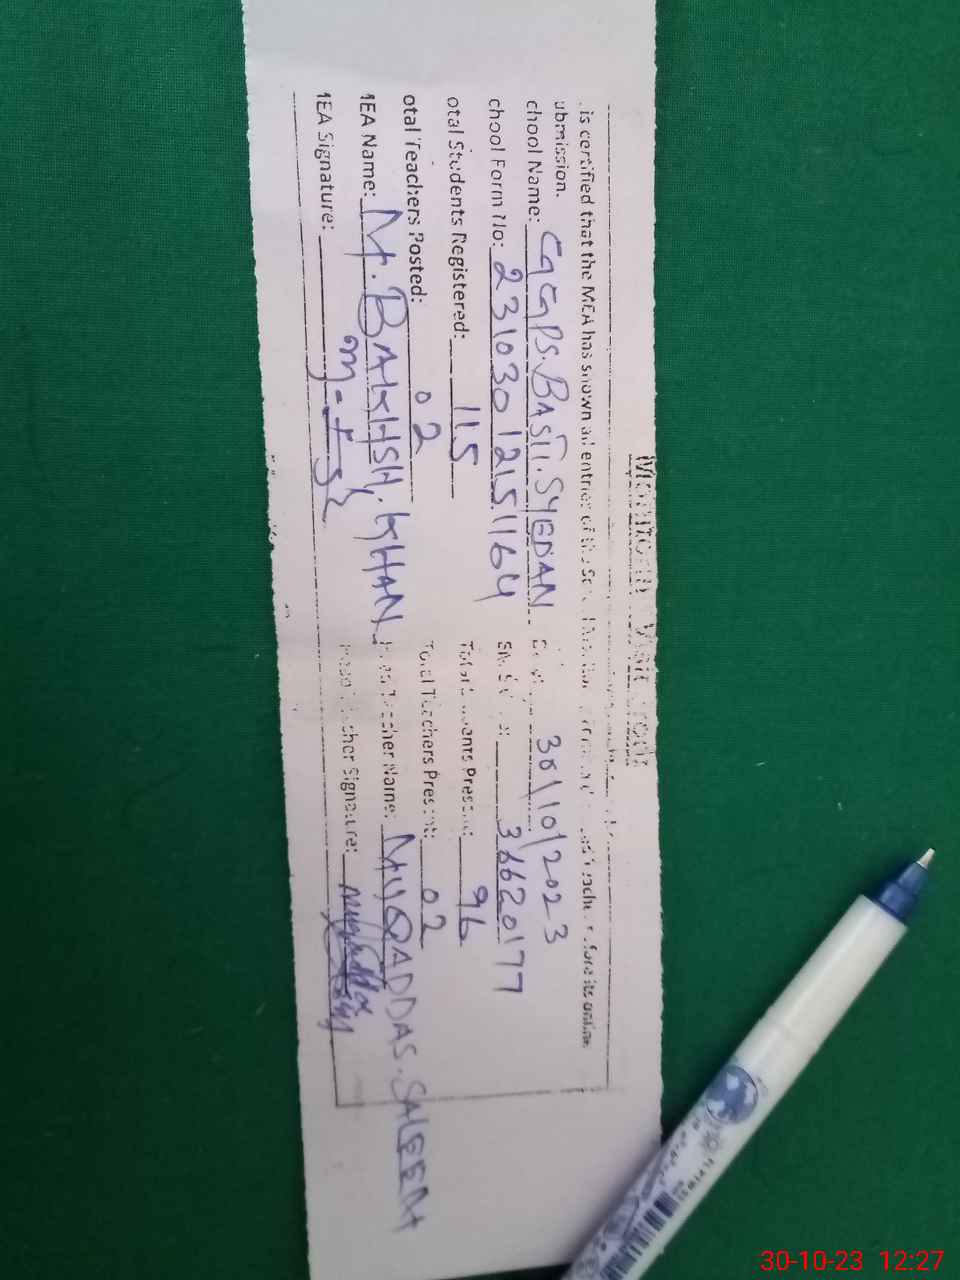 Monitoring Visit
is certified that the MEA has shown all entries of the
ubmission.
chool Name: GGPS. BASTI. SYEDAN 30/10/2023
chool Form No: 23103012151164 36620177
otal Students Registered: 115 Total Students Present: 96
otal Teachers Posted: 02 Total Teachers Present: 02
MEA Name: M. BAKHSH. KHAN Head Teacher Name: MUQADDAS. SALEEM
MEA Signature: Head Teacher Signature:
30-10-23 12:27